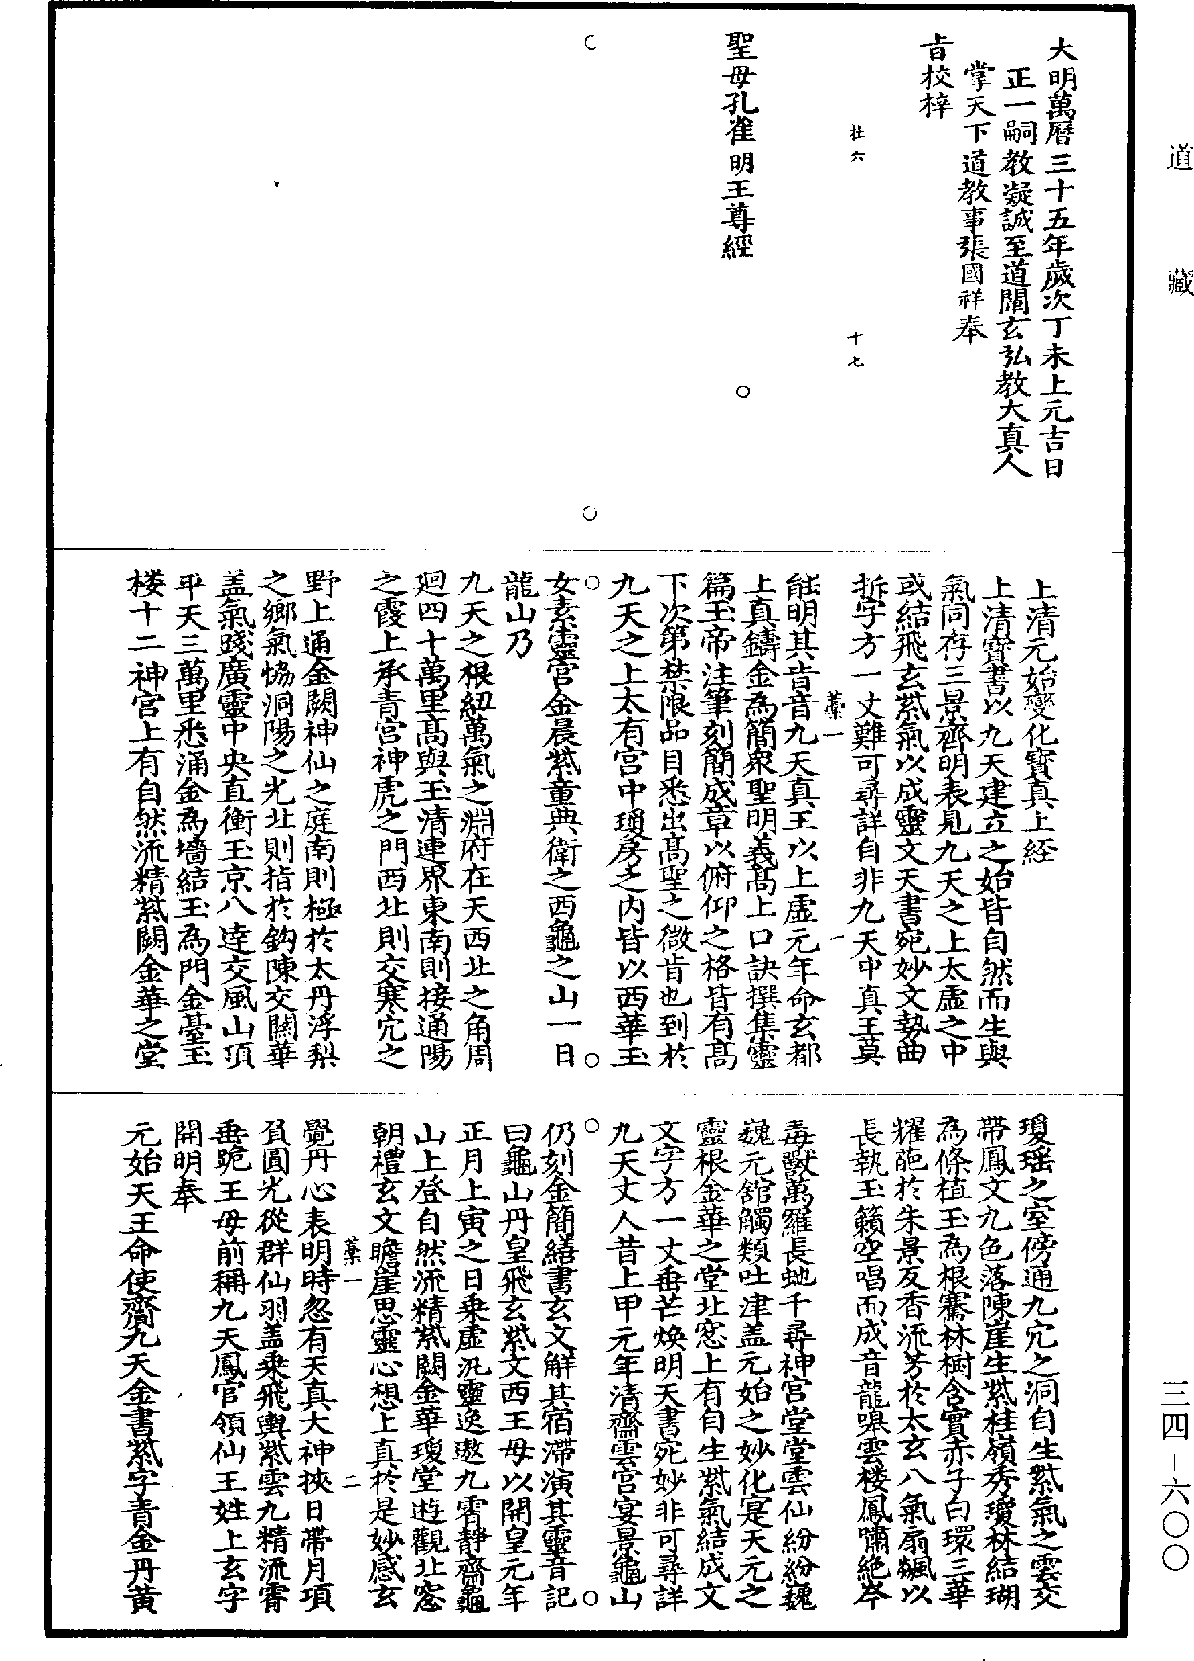 道藏
大明萬曆三十五年歲次丁未上元吉日
正一嗣教凝誠至道闡玄弘教大真人
掌天下道教事張國祥奉
旨校梓
杜六 十七
聖母孔雀明王尊經
上清元始變化寶真上經
上清寶書以九天建立之始皆自然而生與
氣同存三景齊明表見九天之上太虛之中
或結飛玄紫氣以成靈文天書宛妙文勢曲
折字方一丈難可尋詳自非九天中真王莫
藁一 一
能明其旨音九天真王以上虛元年命玄都
上真鑄金為簡眾聖明義高上口訣撰集靈
篇玉帝注筆刻簡成章以俯仰之格皆有高
下次第禁限品目悉出高聖之微旨也到於
九天之上太有宮中瓊房之內皆以西華玉
女素靈宮金晨紫童典衛之西龜之山一曰
龍山乃
九天之根紐萬氣之淵府在天西北之角周
迴四十萬里高與玉清連界東南則接通陽
之霞上承青宮神虎之門西北則交寒穴之
野上通金闕神仙之庭南則極於太丹浮梨
之鄉氣恊洞陽之光北則指於鈎陳交關華
盖氣踐廣靈中央直衡玉京八達交風山頂
平天三萬里悉涌金為墻結玉為門金臺玉
楼十二神宮上有自然流精紫闕金華之堂
瓊瑶之室傍通九穴之洞自生紫氣之雲交
帶鳳文九色落陳崖生紫桂嶺秀瓊林結瑚
為條植玉為根騫林樹含實赤子白環三華
耀葩於朱景反香流芳於太玄八氣扇颻以
長執玉籟空唱而成音龍嘷雲楼鳳嘯絶岑
毒獸萬羅長虵千尋神宮堂堂雲仙紛紛巍
巍元舘觸類吐津盖元始之妙化寔天元之
靈根金華之堂北窓上有自生紫氣結成文
文字方一丈垂芒煥明天書宛妙非可尋詳
九天丈人昔上甲元年清齋雲宮宴景龜山
仍刻金簡繕書玄文解其宿滯演其靈音記
曰龜山丹皇飛玄紫文西王母以開皇元年
正月上寅之日乘虛汎靈逸遨九霄靜齋龜
山上登自然流精紫闕金華瓊堂遊觀北窓
朝禮玄文瞻崖思靈心想上真於是妙感玄
藁一 二
覺丹心表明時忽有天真大神挾日帶月項
負圓光從群仙羽盖乘飛輿紫雲九精流霄
垂跪王母前稱九天鳳官領仙王姓上玄字
開明奉
元始天王命使齎九天金書紫字青金丹黄
三四－六〇〇